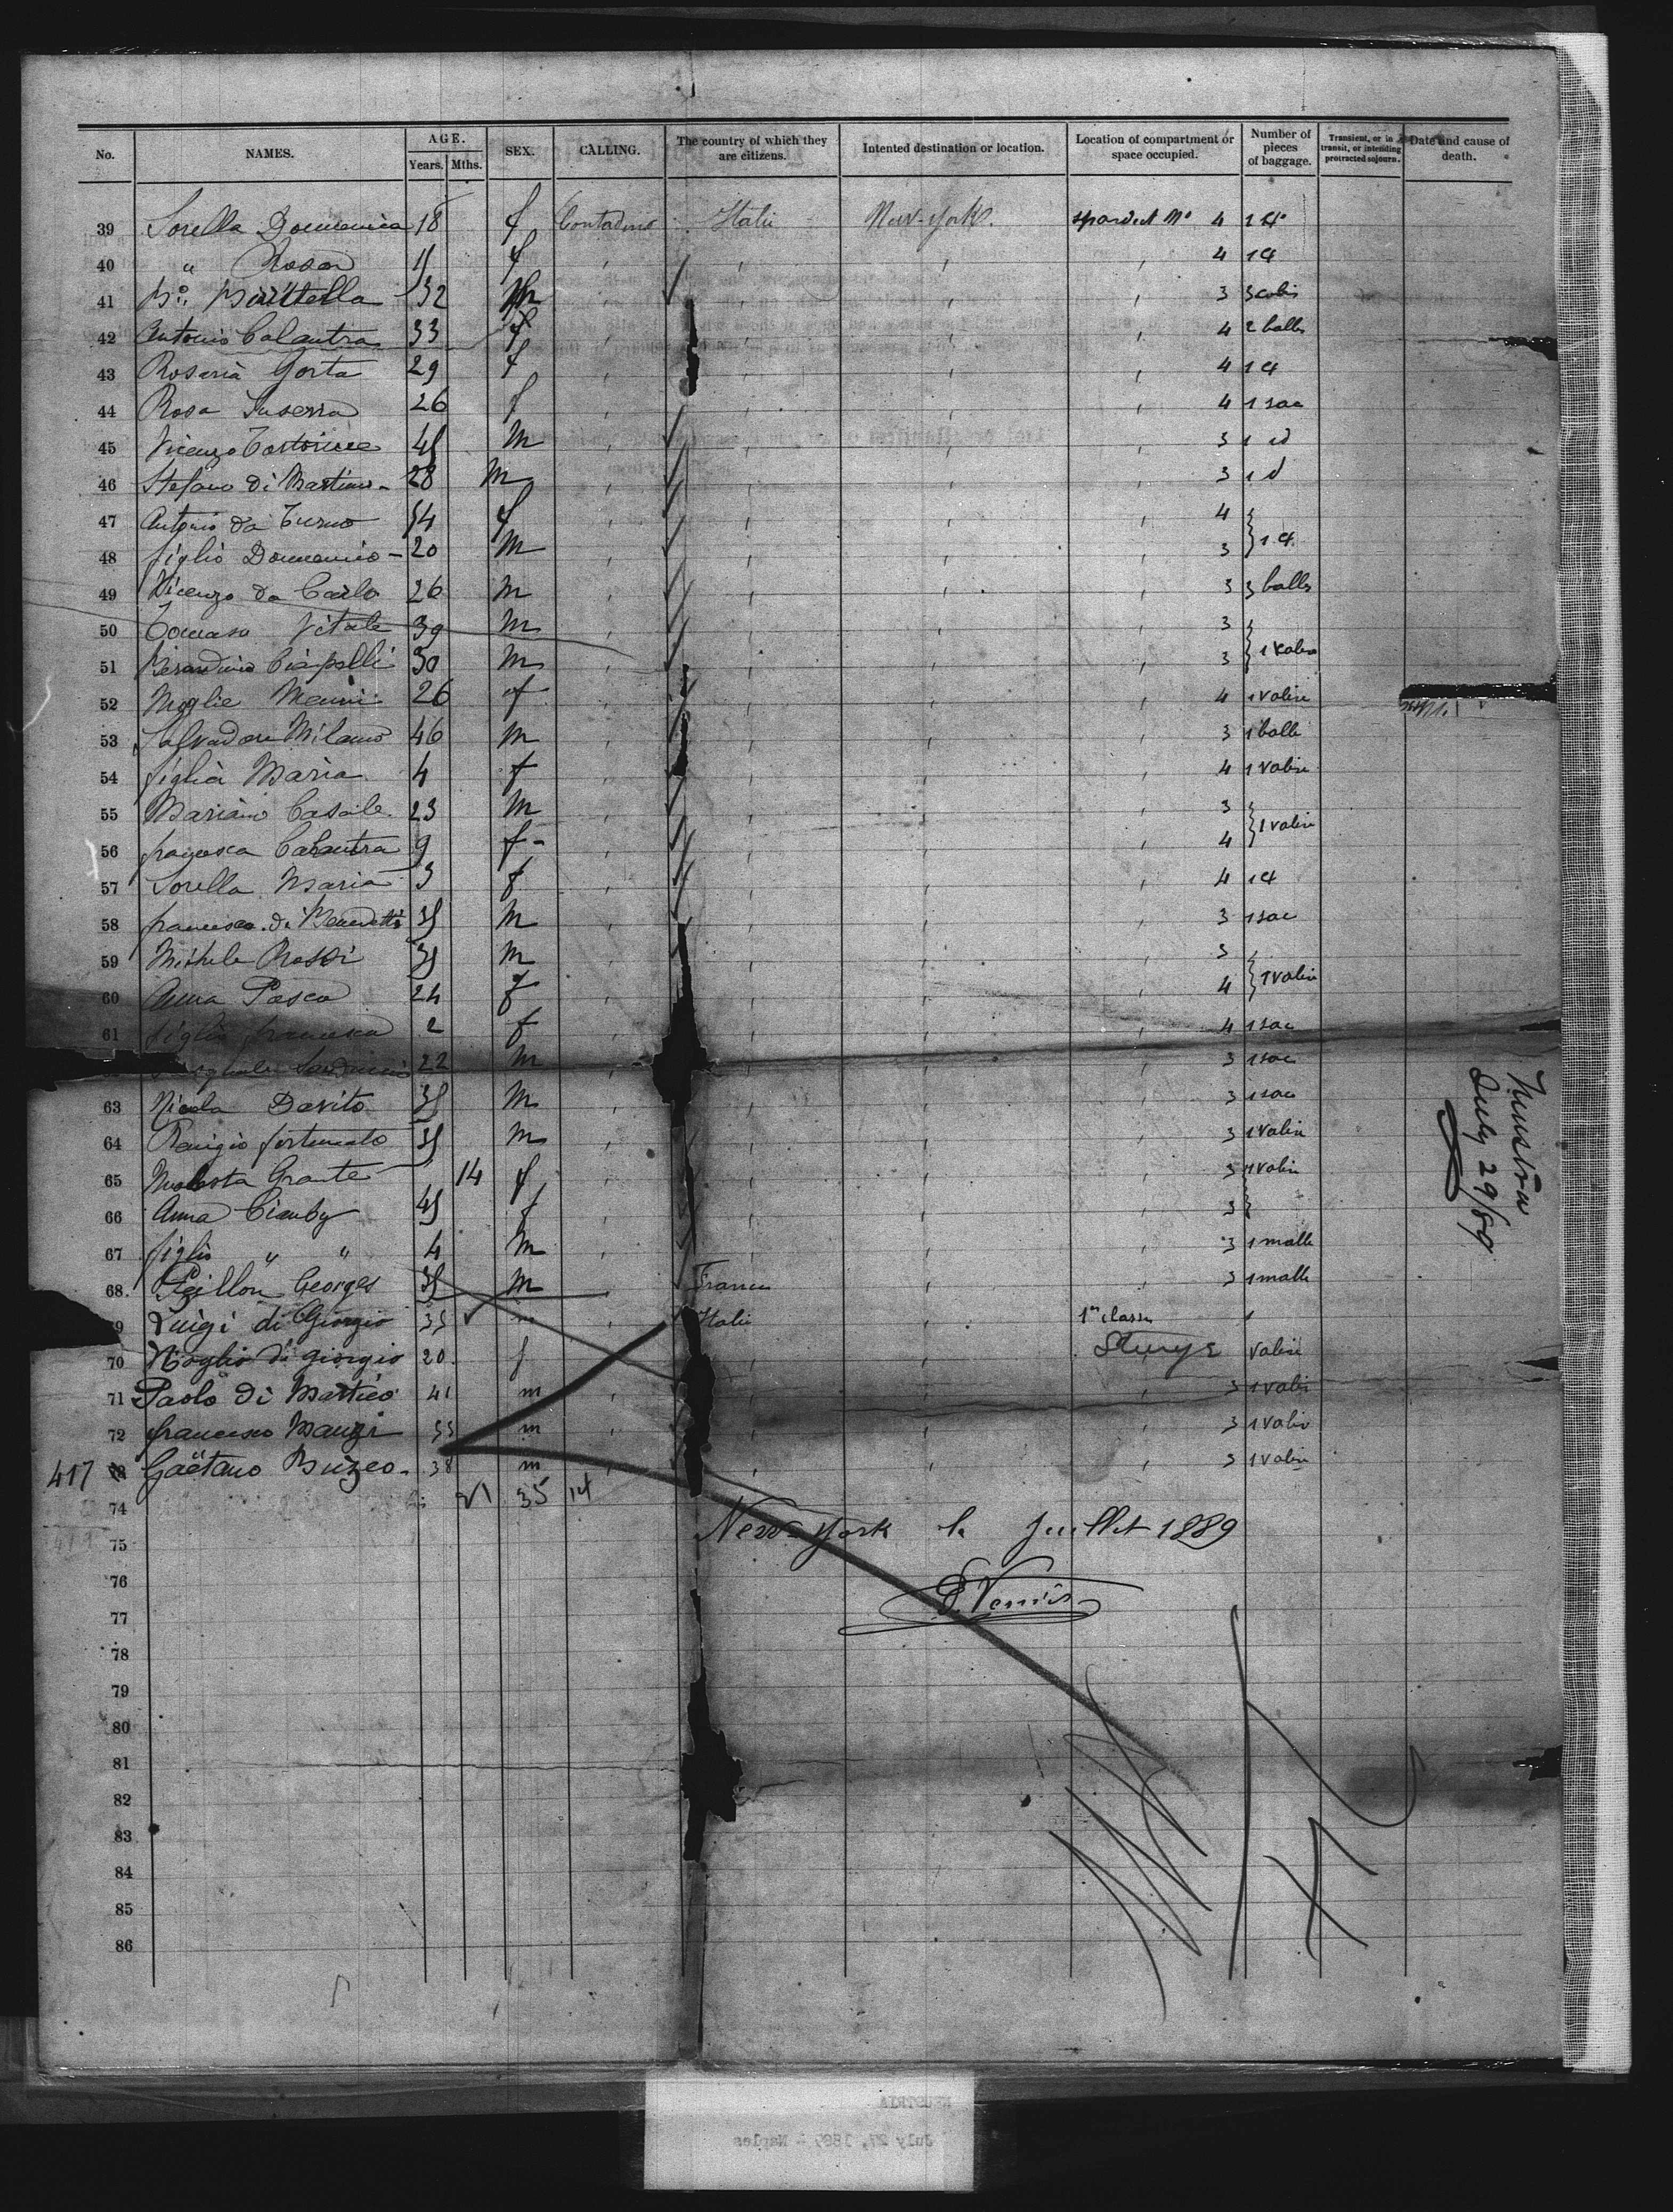 No. NAMES. AGE. Years. Mths. SEX. CALLING. The country of which they are citizens. Intented destination or location. Location of compartment or space occupied. Number of pieces of baggage. Transient, or in transit, or intending protracted sojourn. Date and cause of death.
39 Sorella Domenica 18 f Contadino Italie New-York. 4 1 id
40 " Rosa f 4 1 id
41 32 m 3 3 colis
42 Antonio Calautra 33 f 4 2 balles
43 Rosaria Gorta 29 f 4 1 id
44 Rosa 26 f 4 1 sac
45 Vicenzo Tortorice 45 m 3 1 id
46 Stefano di Martino - 28 m 3 1 d
47 Antonio da 54 f 4
48 figlio Domenico - 20 m 3 1 id
49 Vicenzo da Carlo 26 m 3 3 balles
50 Tomaso Vitale 39 m 3
51 Berardino Ciapelli 30 m 3 1 valise
52 Moglie 26 f 4 1 valise
53 Salvadore Milano 46 m 3 1 balle
54 figlia Maria 4 f 4 1 valise
55 Mariano Casale 23 m 3
56 francesca Calautra 9 f - 4 1 valise
57 Sorella Maria 3 f 4 1 id
58 francesco di Benedetti 35 m 3 1 sac
59 Michele Rossi 35 m 3
60 Anna Pasca 24 f 4 1 valise
61 figlia francesca 2 f 4 1 sac
22 m 3 1 sac
63 Nicola Davito 35 m 3 1 sac
64 Remigio fortunato 35 m 3 1 valise
65 Modesta Grante 14 f 3 1 valise
66 Anna Cianby 45 f 3
67 figlio " " 4 m 3 1 malle
68. Georges 35 m France 3 1 malle
Luigi di Giorgio 35 m Italie 1re classe
70 Moglie di giorgio 20 f valise
71 Paolo di Matteo 41 m 3 1 valise
72 francesco Manzi 33 m 3 1 valise
417 Gaëtano Buzeo - 38 m 3 1 valise
74 21 35 14
New-York le Juillet 1889
75
76
77
78
79
80
81
82
83
84
85
86
Neustria
July 29/89
NEUSTRIA
July 27, 1889 - Naples